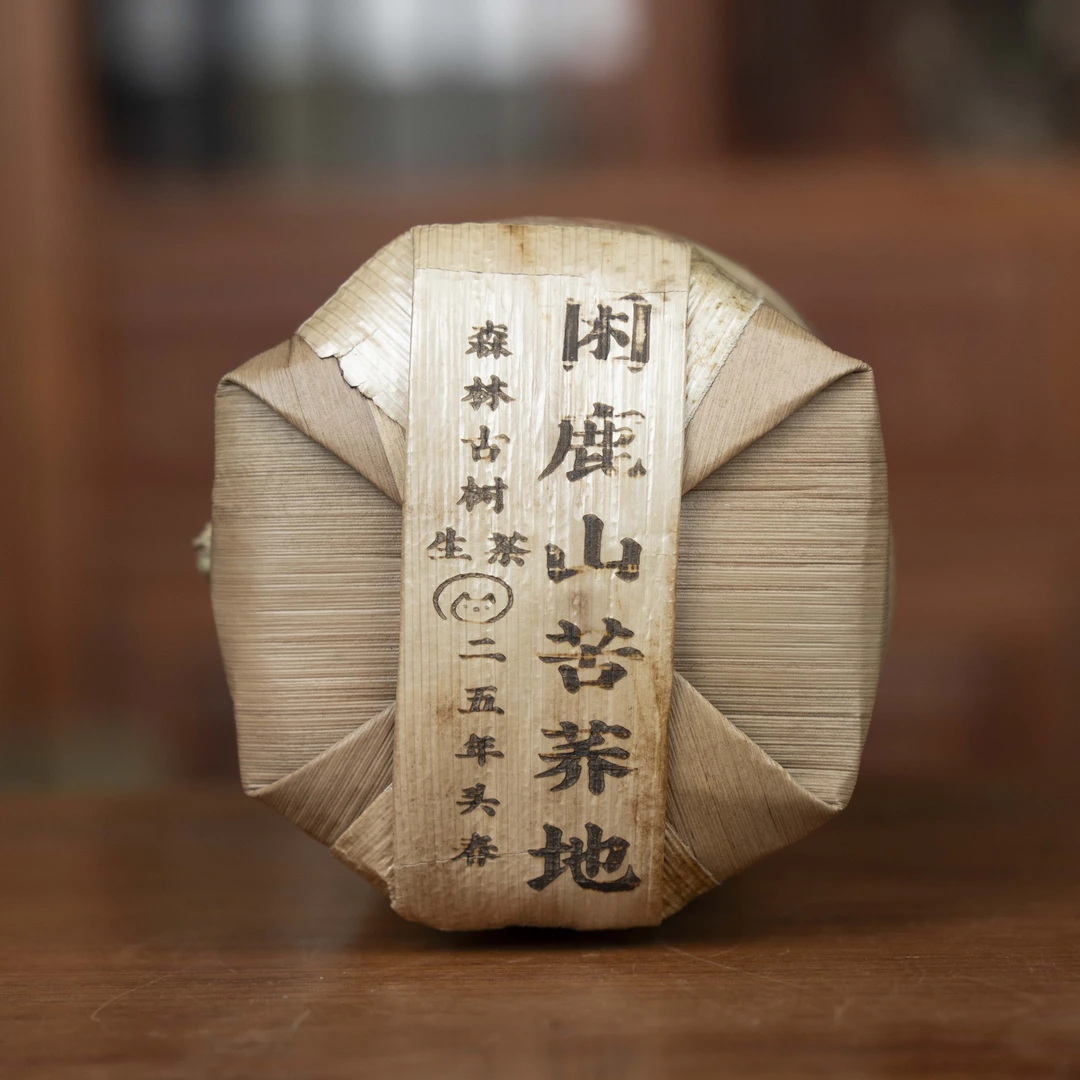 困鹿山苦荞地
森林古树生茶
二五年头春